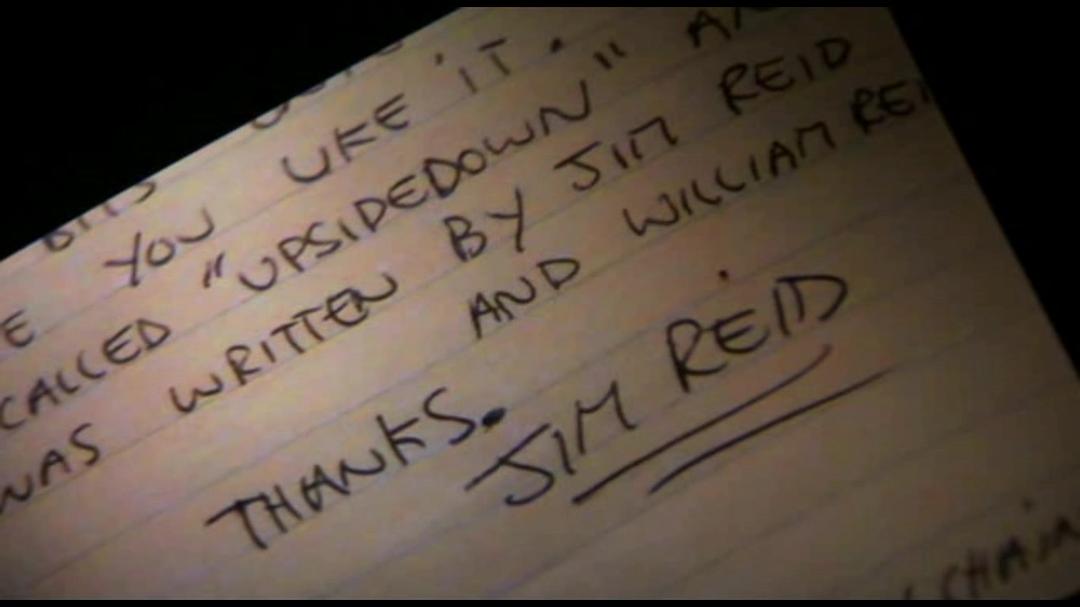 BITS
YOU LIKE IT.
CALLED "UPSIDEDOWN" AN
WAS WRITTEN BY JIM REID
AND WILLIAM REI
THANKS.
JIM REID
CHAIN